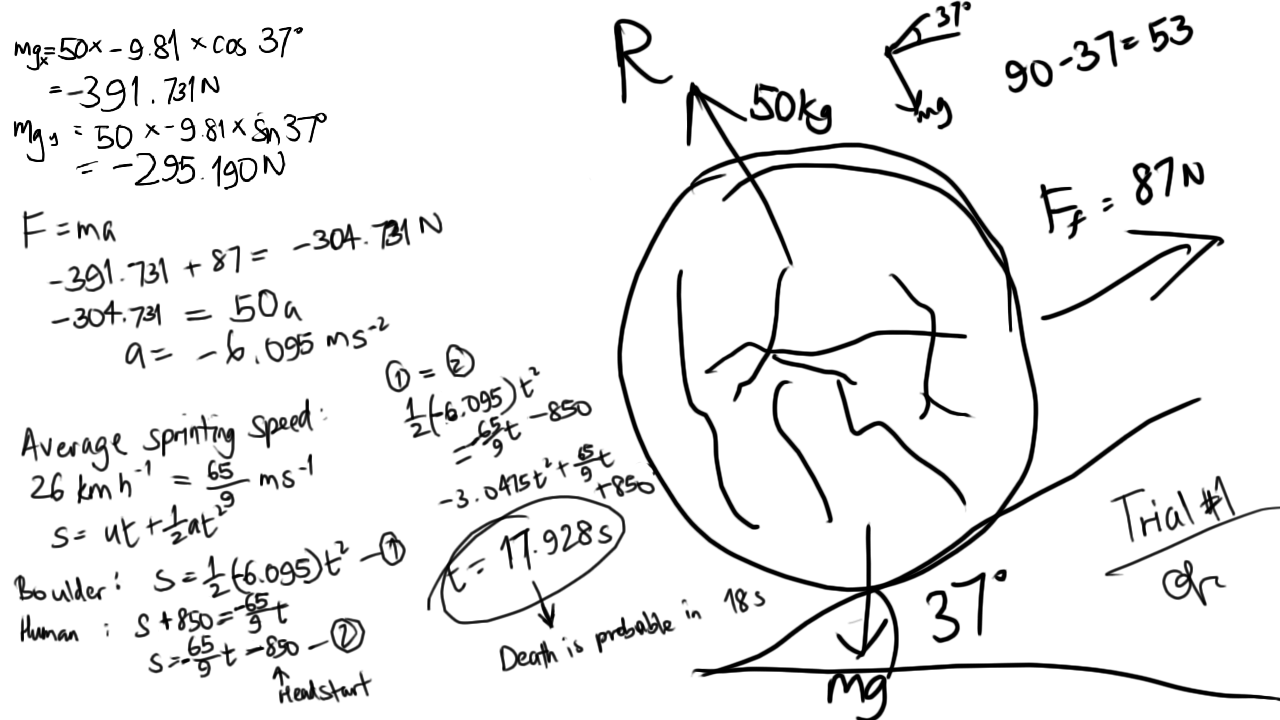 mgx = 50 x - 9.81 x cos 37°
= -391.731 N
mgy = 50 x - 9.81 x sin 37°
= -295.190 N
F = ma
-391.731 + 87 = -304.731 N
-304.731 = 50a
a = -6.095 ms⁻²
Average sprinting speed:
26 kmh⁻¹ = 65/9 ms⁻¹
s = ut + 1/2 at²
Boulder: s = 1/2 (-6.095)t² - ①
Human: s + 850 = -65/9 t
s = -65/9 t - 850 - ②
↑
Headstart
① = ②
1/2 (-6.095)t²
= -65/9 t - 850
-3.0475t² + 65/9 t
+850
t = 17.928 s
Death is probable in 18s
R
50kg
37°
mg
90 - 37 = 53
Ff = 87N
37°
mg
Trial #1